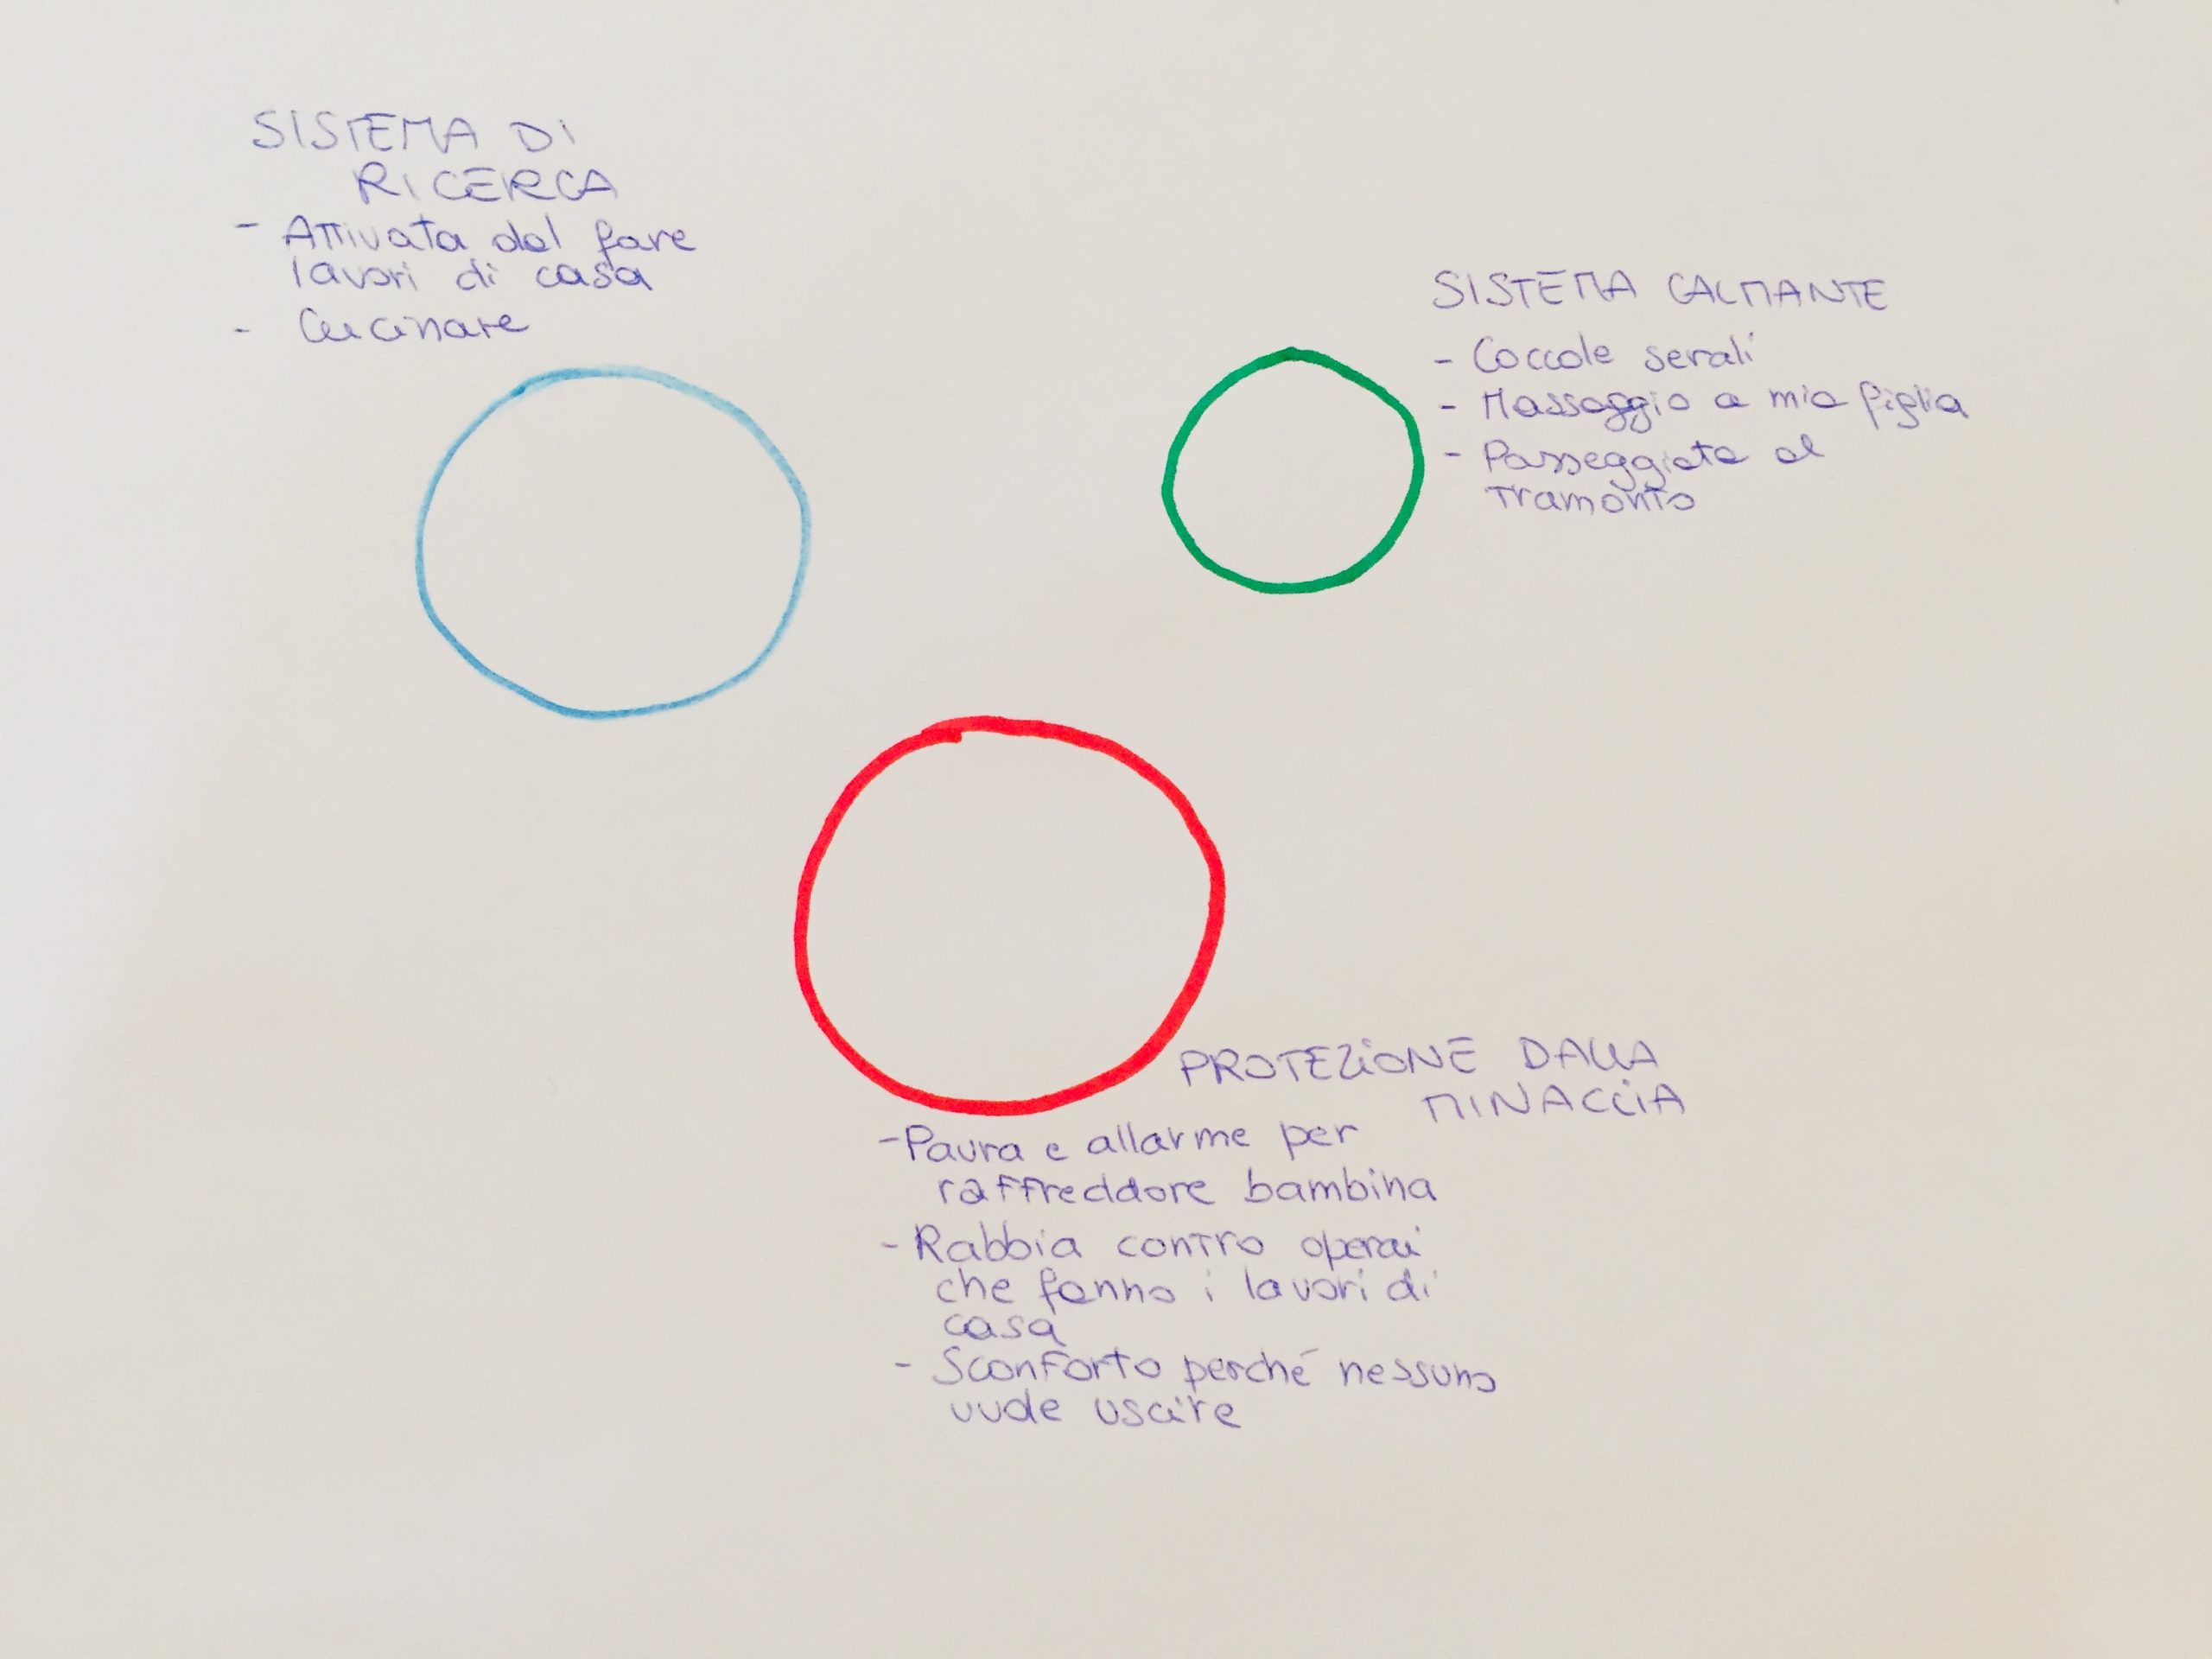 SISTEMA DI
RICERCA
- Attivata dal fare
lavori di casa
- Cucinare
SISTEMA CALMANTE
- Coccole serali
- Massaggio a mia figlia
- Passeggiata al
tramonto
PROTEZIONE DALLA
MINACCIA
- Paura e allarme per
raffreddore bambina
- Rabbia contro operai
che fanno i lavori di
casa
- Sconforto perché nessuno
vuole uscire